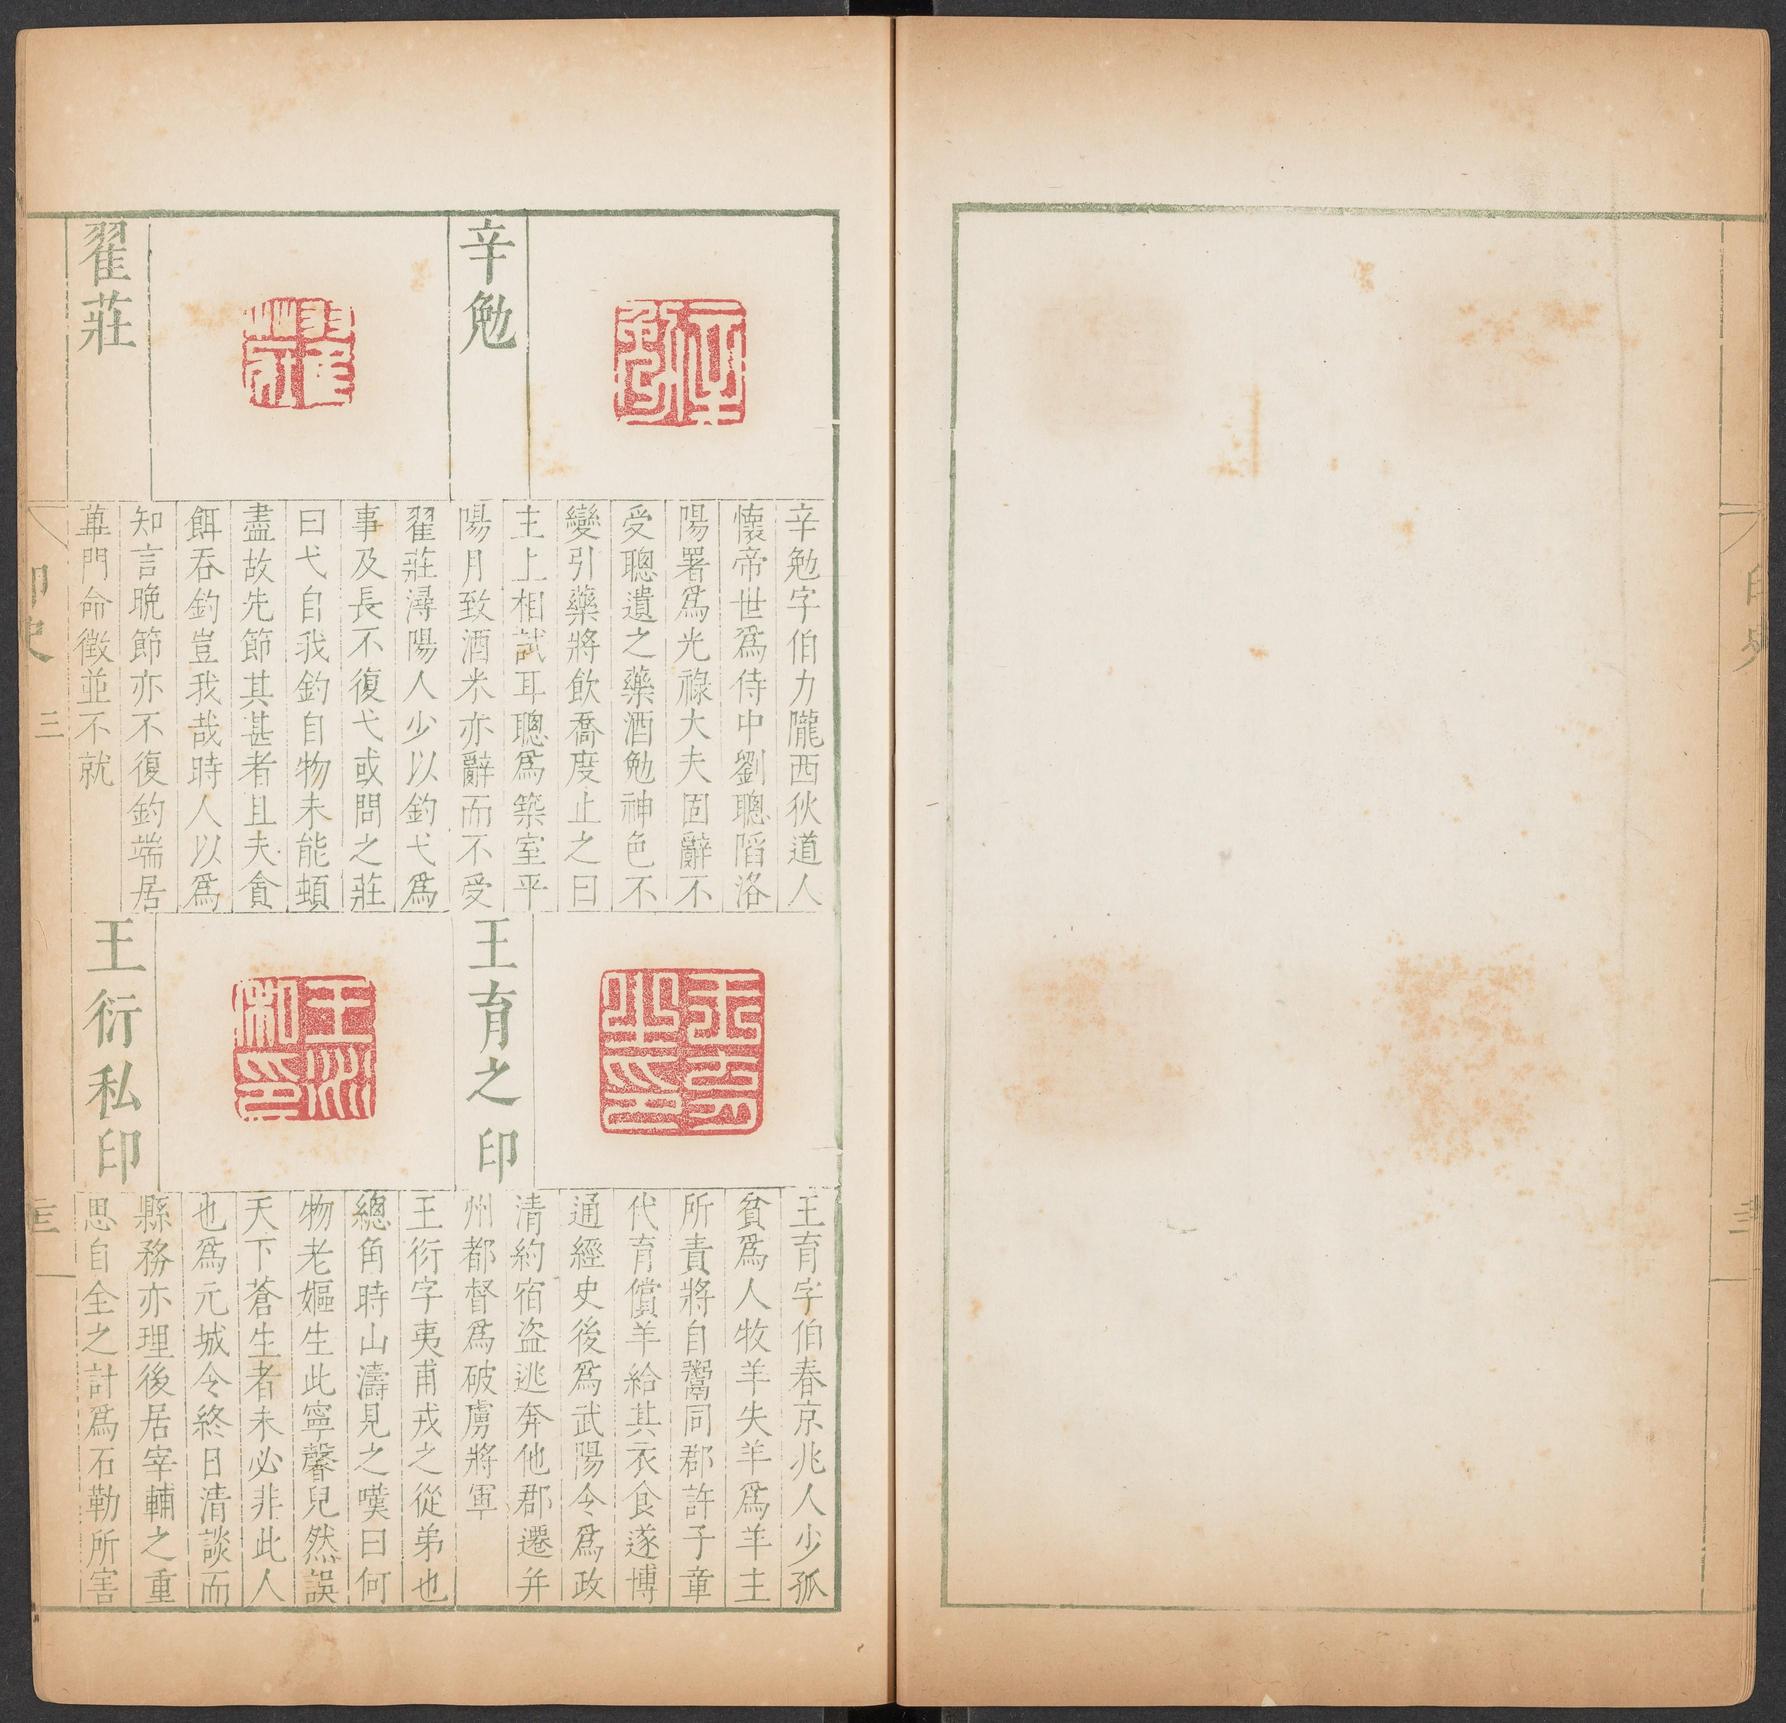 辛勉
辛勉字伯力隴西狄道人
懷帝世爲侍中劉聰陷洛
陽署爲光祿大夫固辭不
受聰遺之藥酒勉神色不
變引藥將飲喬度止之曰
主上相試耳聰爲築室平
陽月致酒米亦辭而不受
翟莊
翟莊潯陽人少以釣弋爲
事及長不復弋或問之莊
曰弋自我釣自物未能頓
盡故先節其甚者且夫貪
餌吞釣豈我哉時人以爲
知言晩節亦不復釣端居
蓽門命徵並不就
王育之印
王育字伯春京兆人少孤
貧爲人牧羊失羊爲羊主
所責將自鬻同郡許子章
代育償羊給其衣食遂博
通經史後爲武陽令爲政
清約宿盜逃奔他郡遷并
州都督爲破虜將軍
王衍私印
王衍字夷甫戎之從弟也
總角時山濤見之嘆曰何
物老嫗生此寧馨兒然誤
天下蒼生者未必非此人
也爲元城令終日清談而
縣務亦理後居宰輔之重
思自全之計爲石勒所害
印史
三